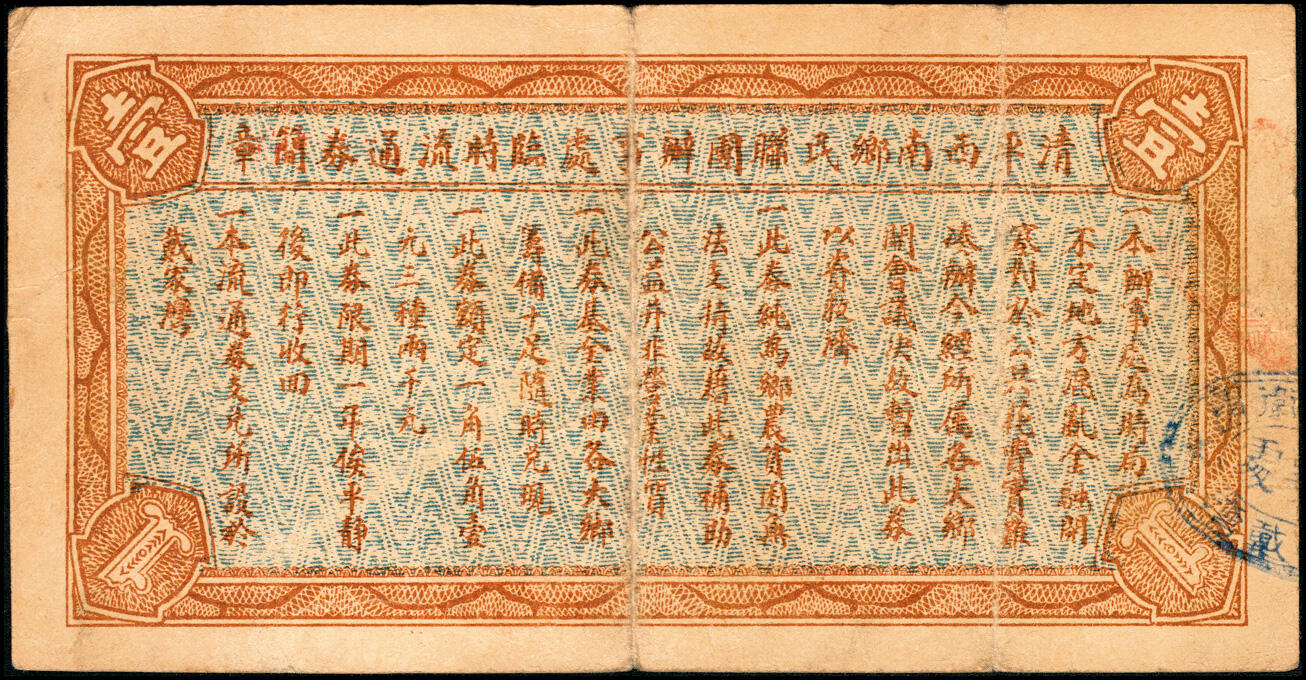 清平西南鄉民聯團辦事處臨時流通券簡章
壹
壹
一本辦事處為時局
不定地方亂金融閉
塞對於公共花費實難
辦今經所屬各大鄉
開會議決故暫出此券
以資救濟
一此券純為鄉農貧困無
法支持故藉此券補助
公益并非營業性質
一此券基金業由各大鄉
籌備十足隨時兌現
一此券額定一角伍角壹
元三種兩千元
一此券限期一年俟平靜
後即行收回
一本流通券支兌所設於
戴家灣
1
1
戴